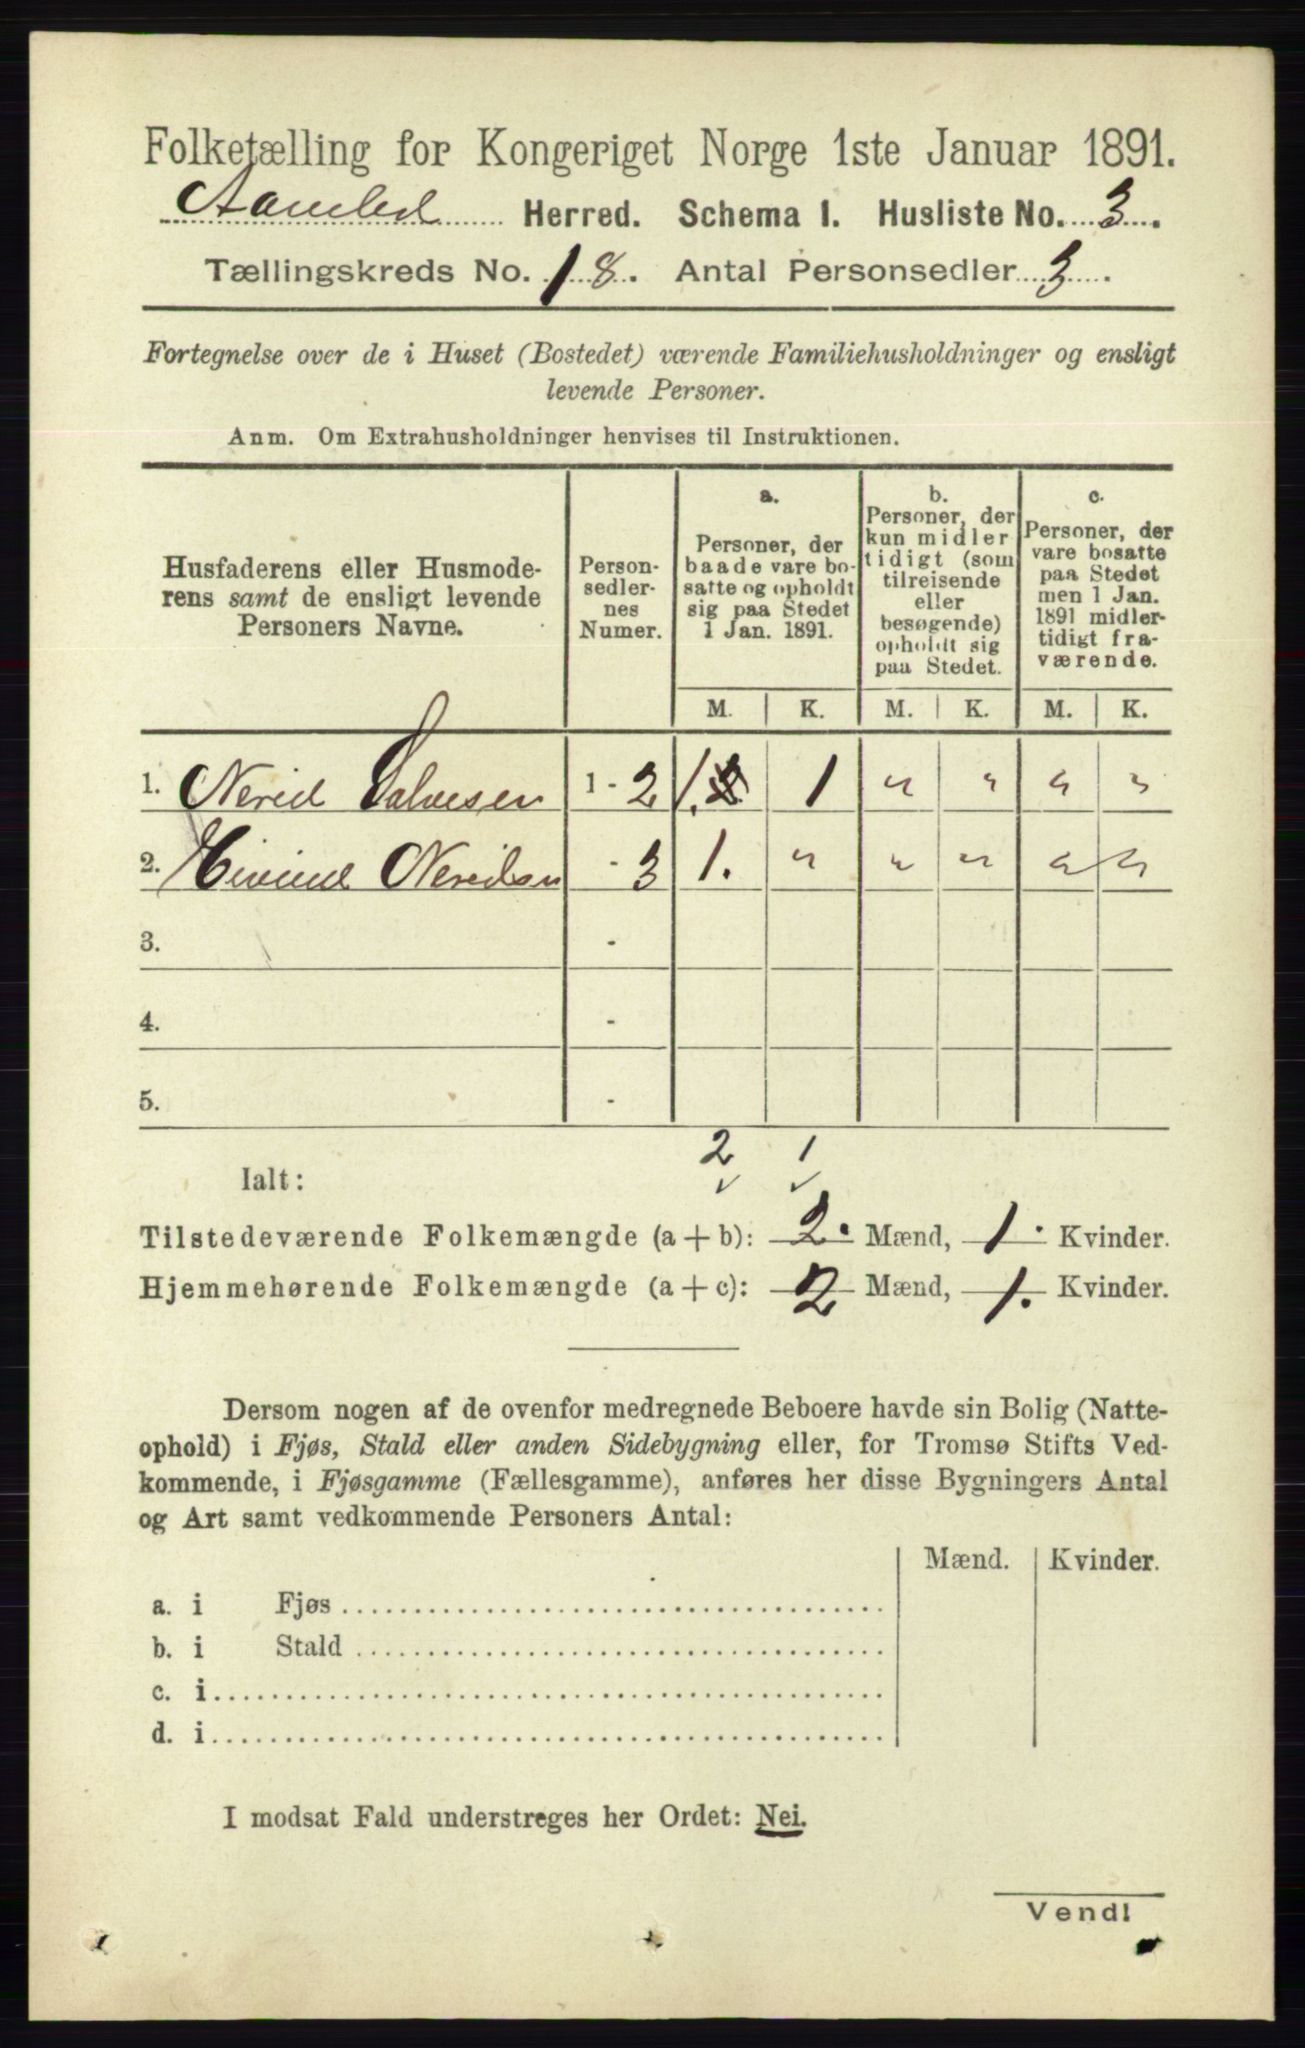 Folketælling for Kongeriget Norge 1ste Januar 1891.
Aamlid Herred. Schema I. Husliste No. 3.
Tællingskreds No. 18. Antal Personsedler 3.
Fortegnelse over de i Huset (Bostedet) værende Familiehusholdninger og ensligt
levende Personer.
Anm. Om Extrahusholdninger henvises til Instruktionen.
Husfaderens eller Husmode-
rens samt de ensligt levende
Personers Navne.
Person-
sedler-
nes
Numer.
a.
Personer, der
baade vare bo-
satte og opholdt
sig paa Stedet
1 Jan. 1891.
b.
Personer, der
kun midler
tidigt (som
tilreisende
eller
besøgende)
opholdt sig
paa Stedet.
c.
Personer, der
vare bosatte
paa Stedet
men 1 Jan.
1891 midler-
tidigt fra-
værende.
M. K. M. K. M. K.
1. Nerid Salvesen 1 - 2 1. 2 1 " " " "
2. Eivind Neridsen - 3 1. " " " " "
3. -
4. -
5. -
2 1
Ialt:
Tilstedeværende Folkemængde (a + b): 2. Mænd, 1. Kvinder.
Hjemmehørende Folkemængde (a + c): 2 Mænd, 1. Kvinder.
Dersom nogen af de ovenfor medregnede Beboere havde sin Bolig (Natte-
ophold) i Fjøs, Stald eller anden Sidebygning eller, for Tromsø Stifts Ved-
kommende, i Fjøsgamme (Fællesgamme), anføres her disse Bygningers Antal
og Art samt vedkommende Personers Antal:
Mænd. Kvinder.
a. i Fjøs
b. i Stald
c. i
d. i
I modsat Fald understreges her Ordet: Nei.
Vend!